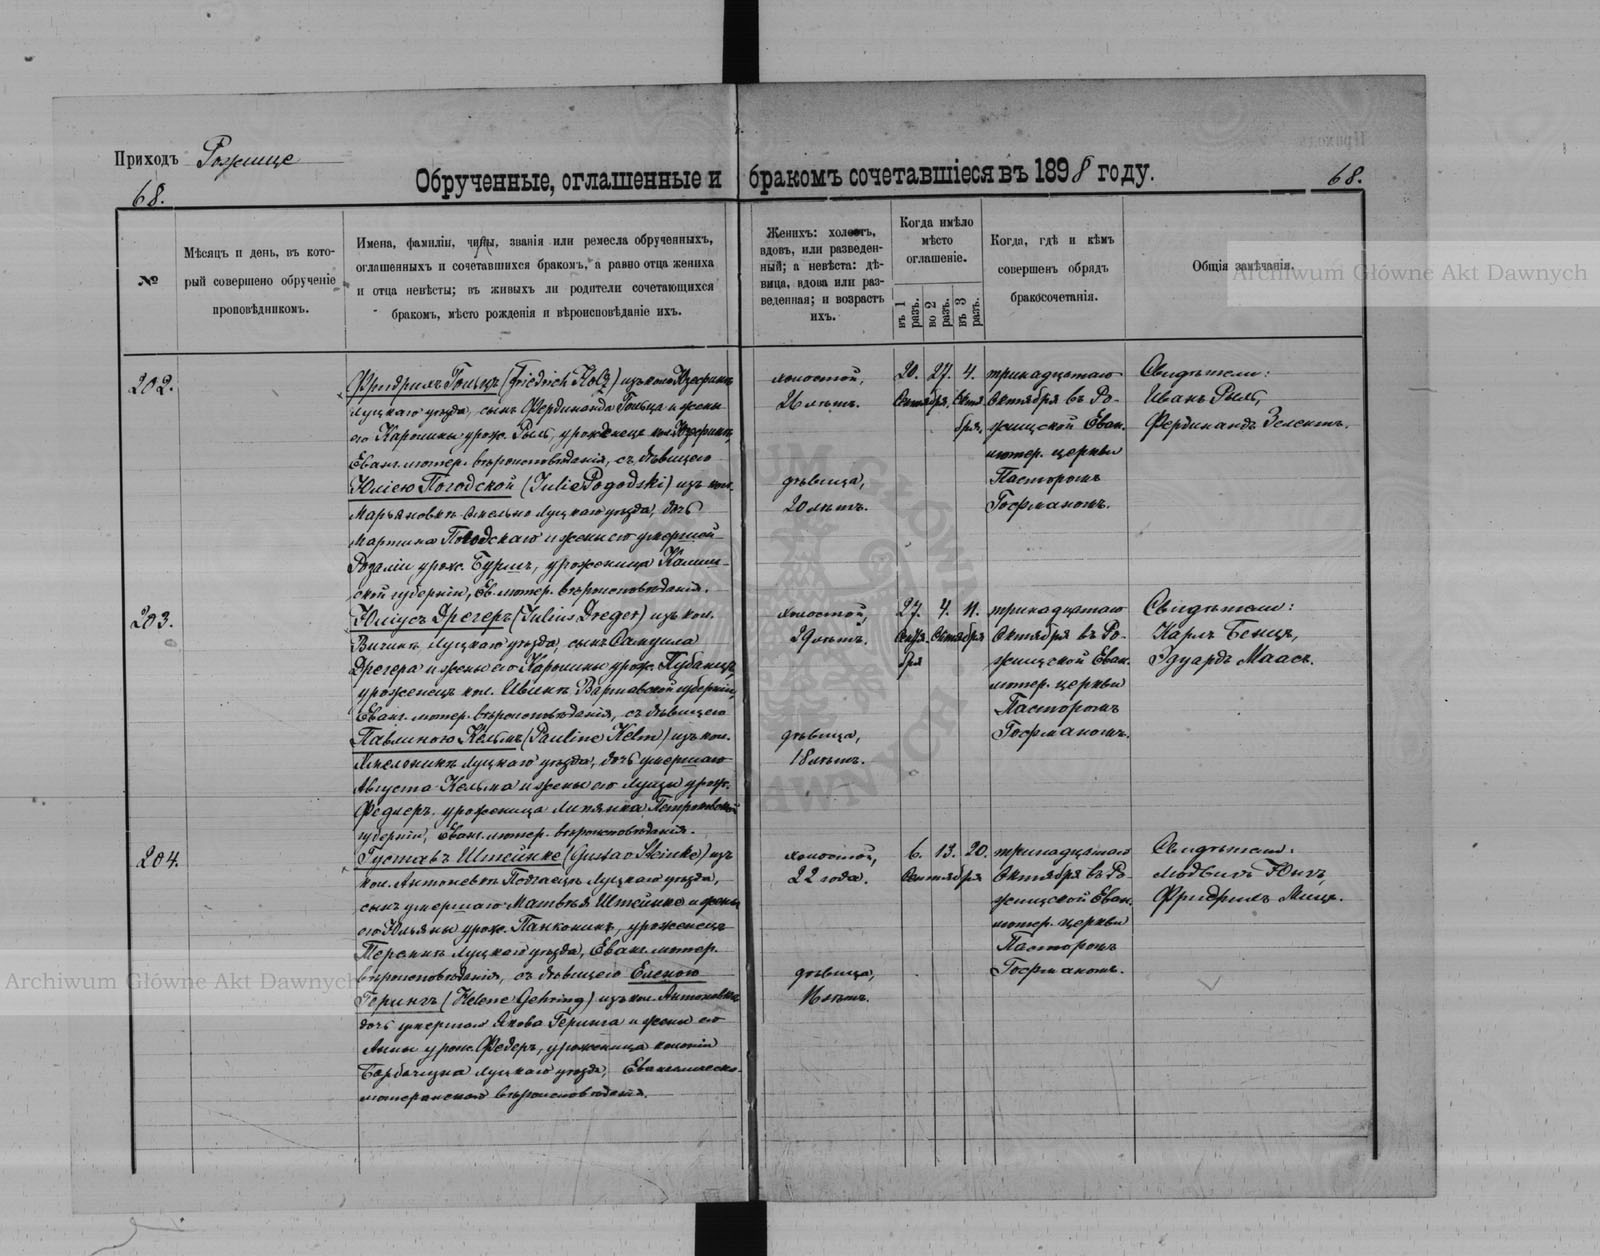 Приходъ Рожище
68.
Обрученные, оглашенные и бракомъ сочетавшіеся въ 1898 году.
68.
№
Мѣсяцъ и день, въ кото-
рый совершено обрученіе
проповѣдникомъ.
Имена, фамиліи, чины, званія или ремесла обрученныхъ,
оглашенныхъ и сочетавшихся бракомъ, а равно отца жениха
и отца невѣсты; въ живыхъ ли родители сочетающихся
бракомъ, мѣсто рожденія и вѣроисповѣданіе ихъ.
Женихъ: холостъ,
вдовъ, или разведен-
ный; а невѣста: дѣ-
вица, вдова или раз-
веденная; и возрастъ
ихъ.
Когда имѣло
мѣсто
оглашеніе.
въ 1 разъ.
во 2 разъ.
въ 3 разъ.
Когда, гдѣ и кѣмъ
совершенъ обрядъ
бракосочетанія.
Общія замѣчанія.
Archiwum Główne Akt Dawnych
202.
Фридрихъ Гольцъ (Friedrich Holz) изъ кол. Юзефинъ
Луцкаго уѣзда, сынъ Фердинанда Гольца и жены
его Каролины урож. Рыль, уроженецъ кол. Юзефинъ,
Еванг. лютер. вѣроисповѣданія, съ дѣвицею
Юліею Погодской (Julie Pogodski) изъ кол.
Луцкаго уѣзда, дочь
Мартина Погодскаго и жены его умершей
Розаліи урож. уроженица Калиш-
ской губерніи, Ев. лютер. вѣроисповѣданія.
холостой,
26 лѣтъ.
дѣвица,
20 лѣтъ.
20. 27. 4.
Сентября, Октя
бря.
тринадцатаго
Октября въ Ро-
жищской Еван.
лютер. церкви
Пасторомъ
Госфманомъ.
Свидѣтели:
Иванъ Рыль,
Фердинандъ
203.
Юліусъ Дрегеръ (Julius Dreger) изъ кол.
Луцкаго уѣзда, сынъ Самуила
Дрегера и жены его Каролины урож.
уроженецъ кол. Варшавской губерніи,
Еванг. лютер. вѣроисповѣданія, съ дѣвицею
Павлиною Кельмъ (Pauline Kelm) изъ кол.
Луцкаго уѣзда, дочь умершаго
Августа Кельма и жены его Луизы урож.
уроженица Петроковской
губерніи, Еванг. лютер. вѣроисповѣданія.
холостой,
29 лѣтъ.
дѣвица,
18 лѣтъ.
27. 4. 11.
Сентя- Октября
бря
тринадцатаго
Октября въ Ро-
жищской Еван.
лютер. церкви
Пасторомъ
Госфманомъ.
Свидѣтели:
Карлъ Бенцъ,
Эдуардъ Маасъ.
204.
Густавъ Штейнке (Gustav Steinke) изъ
кол. Антоневки Луцкаго уѣзда,
сынъ умершаго Матвѣя Штейнке и жены
его Юльяны урож. Панконинъ, уроженецъ
Луцкаго уѣзда, Еванг. лютер.
вѣроисповѣданія, съ дѣвицею Еленою
Герингъ (Helene Gehring) изъ кол. Антоневки,
дочь умершаго Якова Геринга и жены его
Анны урож. Федеръ, уроженица колоніи
Луцкаго уѣзда, Евангелическо-
лютеранскаго вѣроисповѣданія.
холостой,
22 года.
дѣвица,
16 лѣтъ.
6. 13. 20.
Сентября
тринадцатаго
Октября въ Ро-
жищской Еван.
лютер. церкви
Пасторомъ
Госфманомъ.
Свидѣтели:
Людвигъ Юнгъ,
Фридрихъ
Archiwum Główne Akt Dawnych